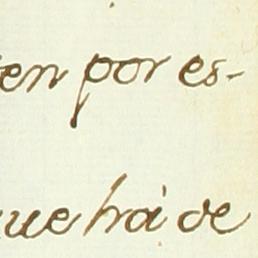 en por es-
que hà de